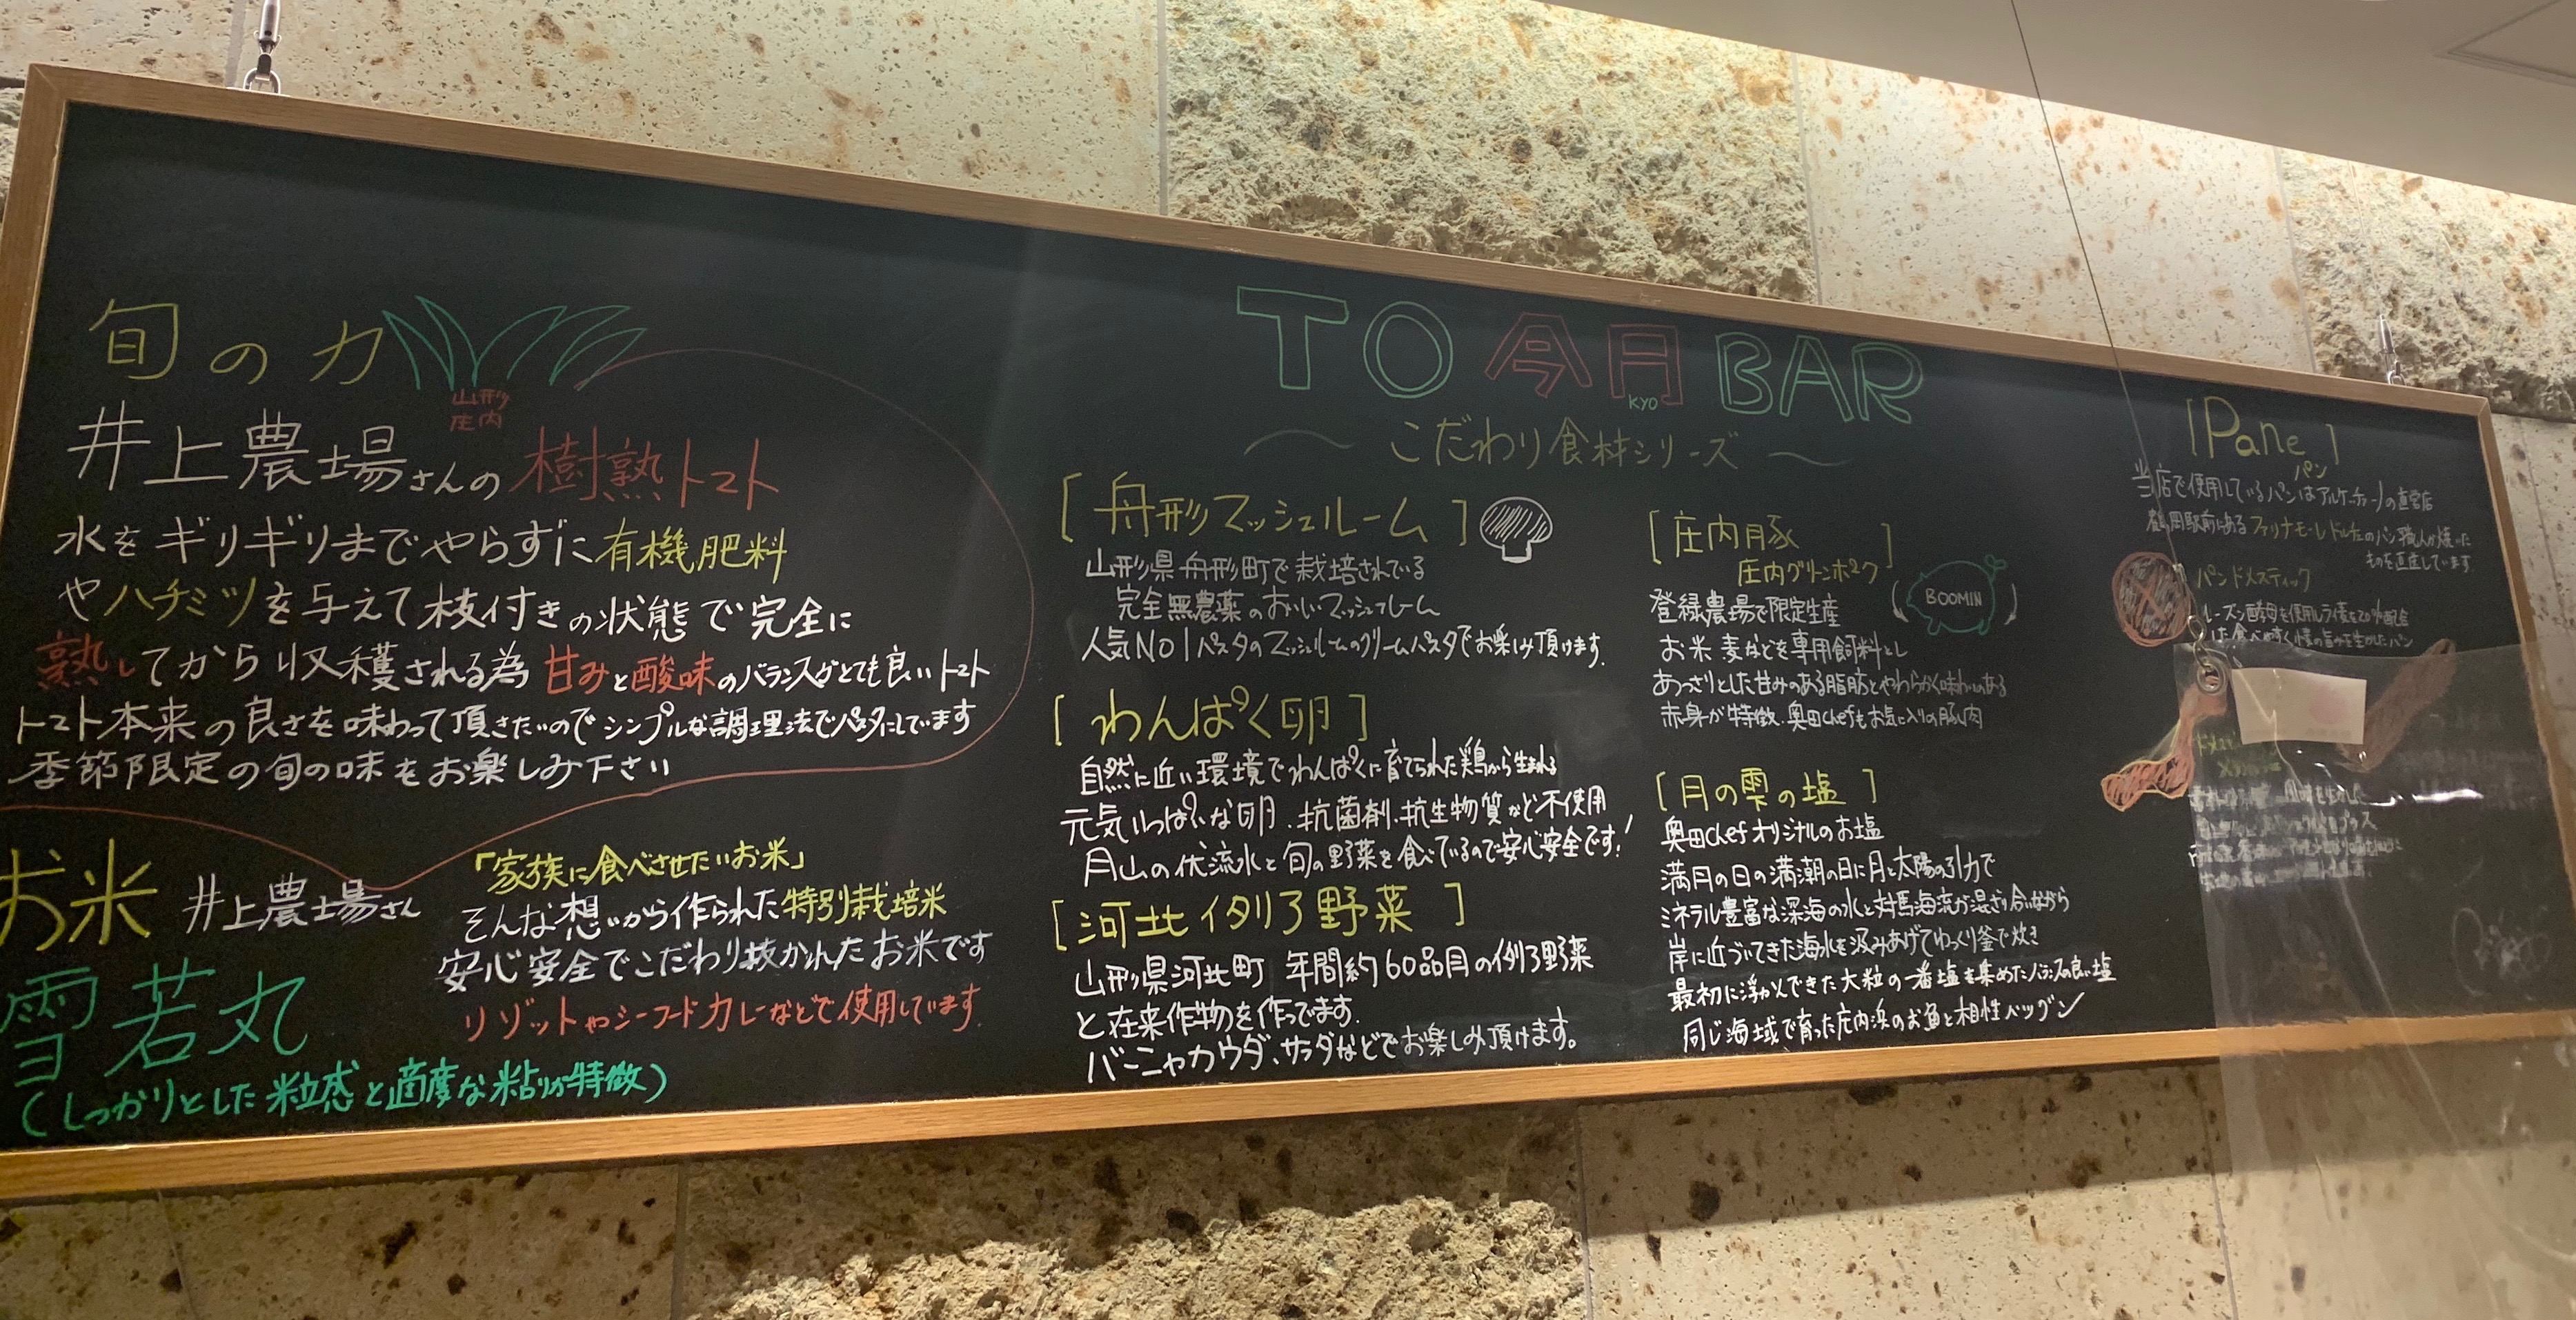 旬の力
山形
庄内
井上農場さんの樹熟トマト
水をギリギリまでやらずに有機肥料
やハチミツを与えて枝付きの状態で完全に
熟してから収穫される為甘みと酸味のバランスがとても良いトマト
トマト本来の良さを味わって頂きたいのでシンプルな調理法でパスタにしています
季節限定の旬の味をお楽しみ下さい
お米 井上農場さん
雪若丸
(しっかりとした粒感と適度な粘りが特徴)
「家族に食べさせたいお米」
そんな想いから作られた特別栽培米
安心安全でこだわり抜かれたお米です
リゾットやシーフードカレーなどで使用しています
TO 今月 BAR
KYO
〜こだわり食材シリーズ〜
[舟形マッシュルーム]
山形県舟形町で栽培されている
完全無農薬のおいしいマッシュルーム
人気NO1パスタのマッシュルームのクリームパスタでお楽しみ頂けます.
[わんぱく卵]
自然に近い環境でわんぱくに育てられた鶏から生まれる
元気いっぱいな卵.抗菌剤.抗生物質など不使用
月山の伏流水と旬の野菜を食べているので安心安全です!
[河北イタリア野菜]
山形県河北町 年間約60品目の伊タリア野菜
と在来作物を作ってます.
バーニャカウダ、サラダなどでお楽しみ頂けます。
[庄内豚]
庄内グリーンポーク
BOOMIN
登録農場で限定生産
お米 麦などを専用飼料とし
あっさりとした甘みのある脂肪とやわらかく味わいのある
赤身が特徴.奥田chefもお気に入りの豚肉
[月の雫の塩]
奥田chefオリジナルのお塩
満月の日の満潮の日に月と太陽の引力で
ミネラル豊富な深海の水と対馬海流が混ざり合いながら
岸に近づいてきた海水を汲みあげてゆっくり釜で炊き
最初に浮かんできた大粒の一番塩を集めたバランスの良い塩
同じ海域で育った庄内浜のお魚と相性バツグン
[Pane]
パン
当店で使用しているパンはアルケッチァーノの直営店
鶴岡駅前にあるファリナモーレドルチェのパン職人が焼いた
ものを直送しています.
パンドメスティック
レーズン酵母を使用しライ麦を20%配合